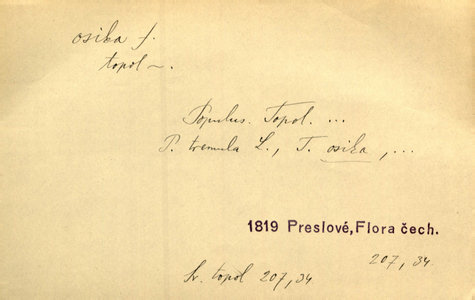 osika f.
topol ~.
Populus. Topol. ...
P. tremula L., T. osika, ...
1819 Preslové, Flora čech.
207, 34
Sr. topol 207, 34